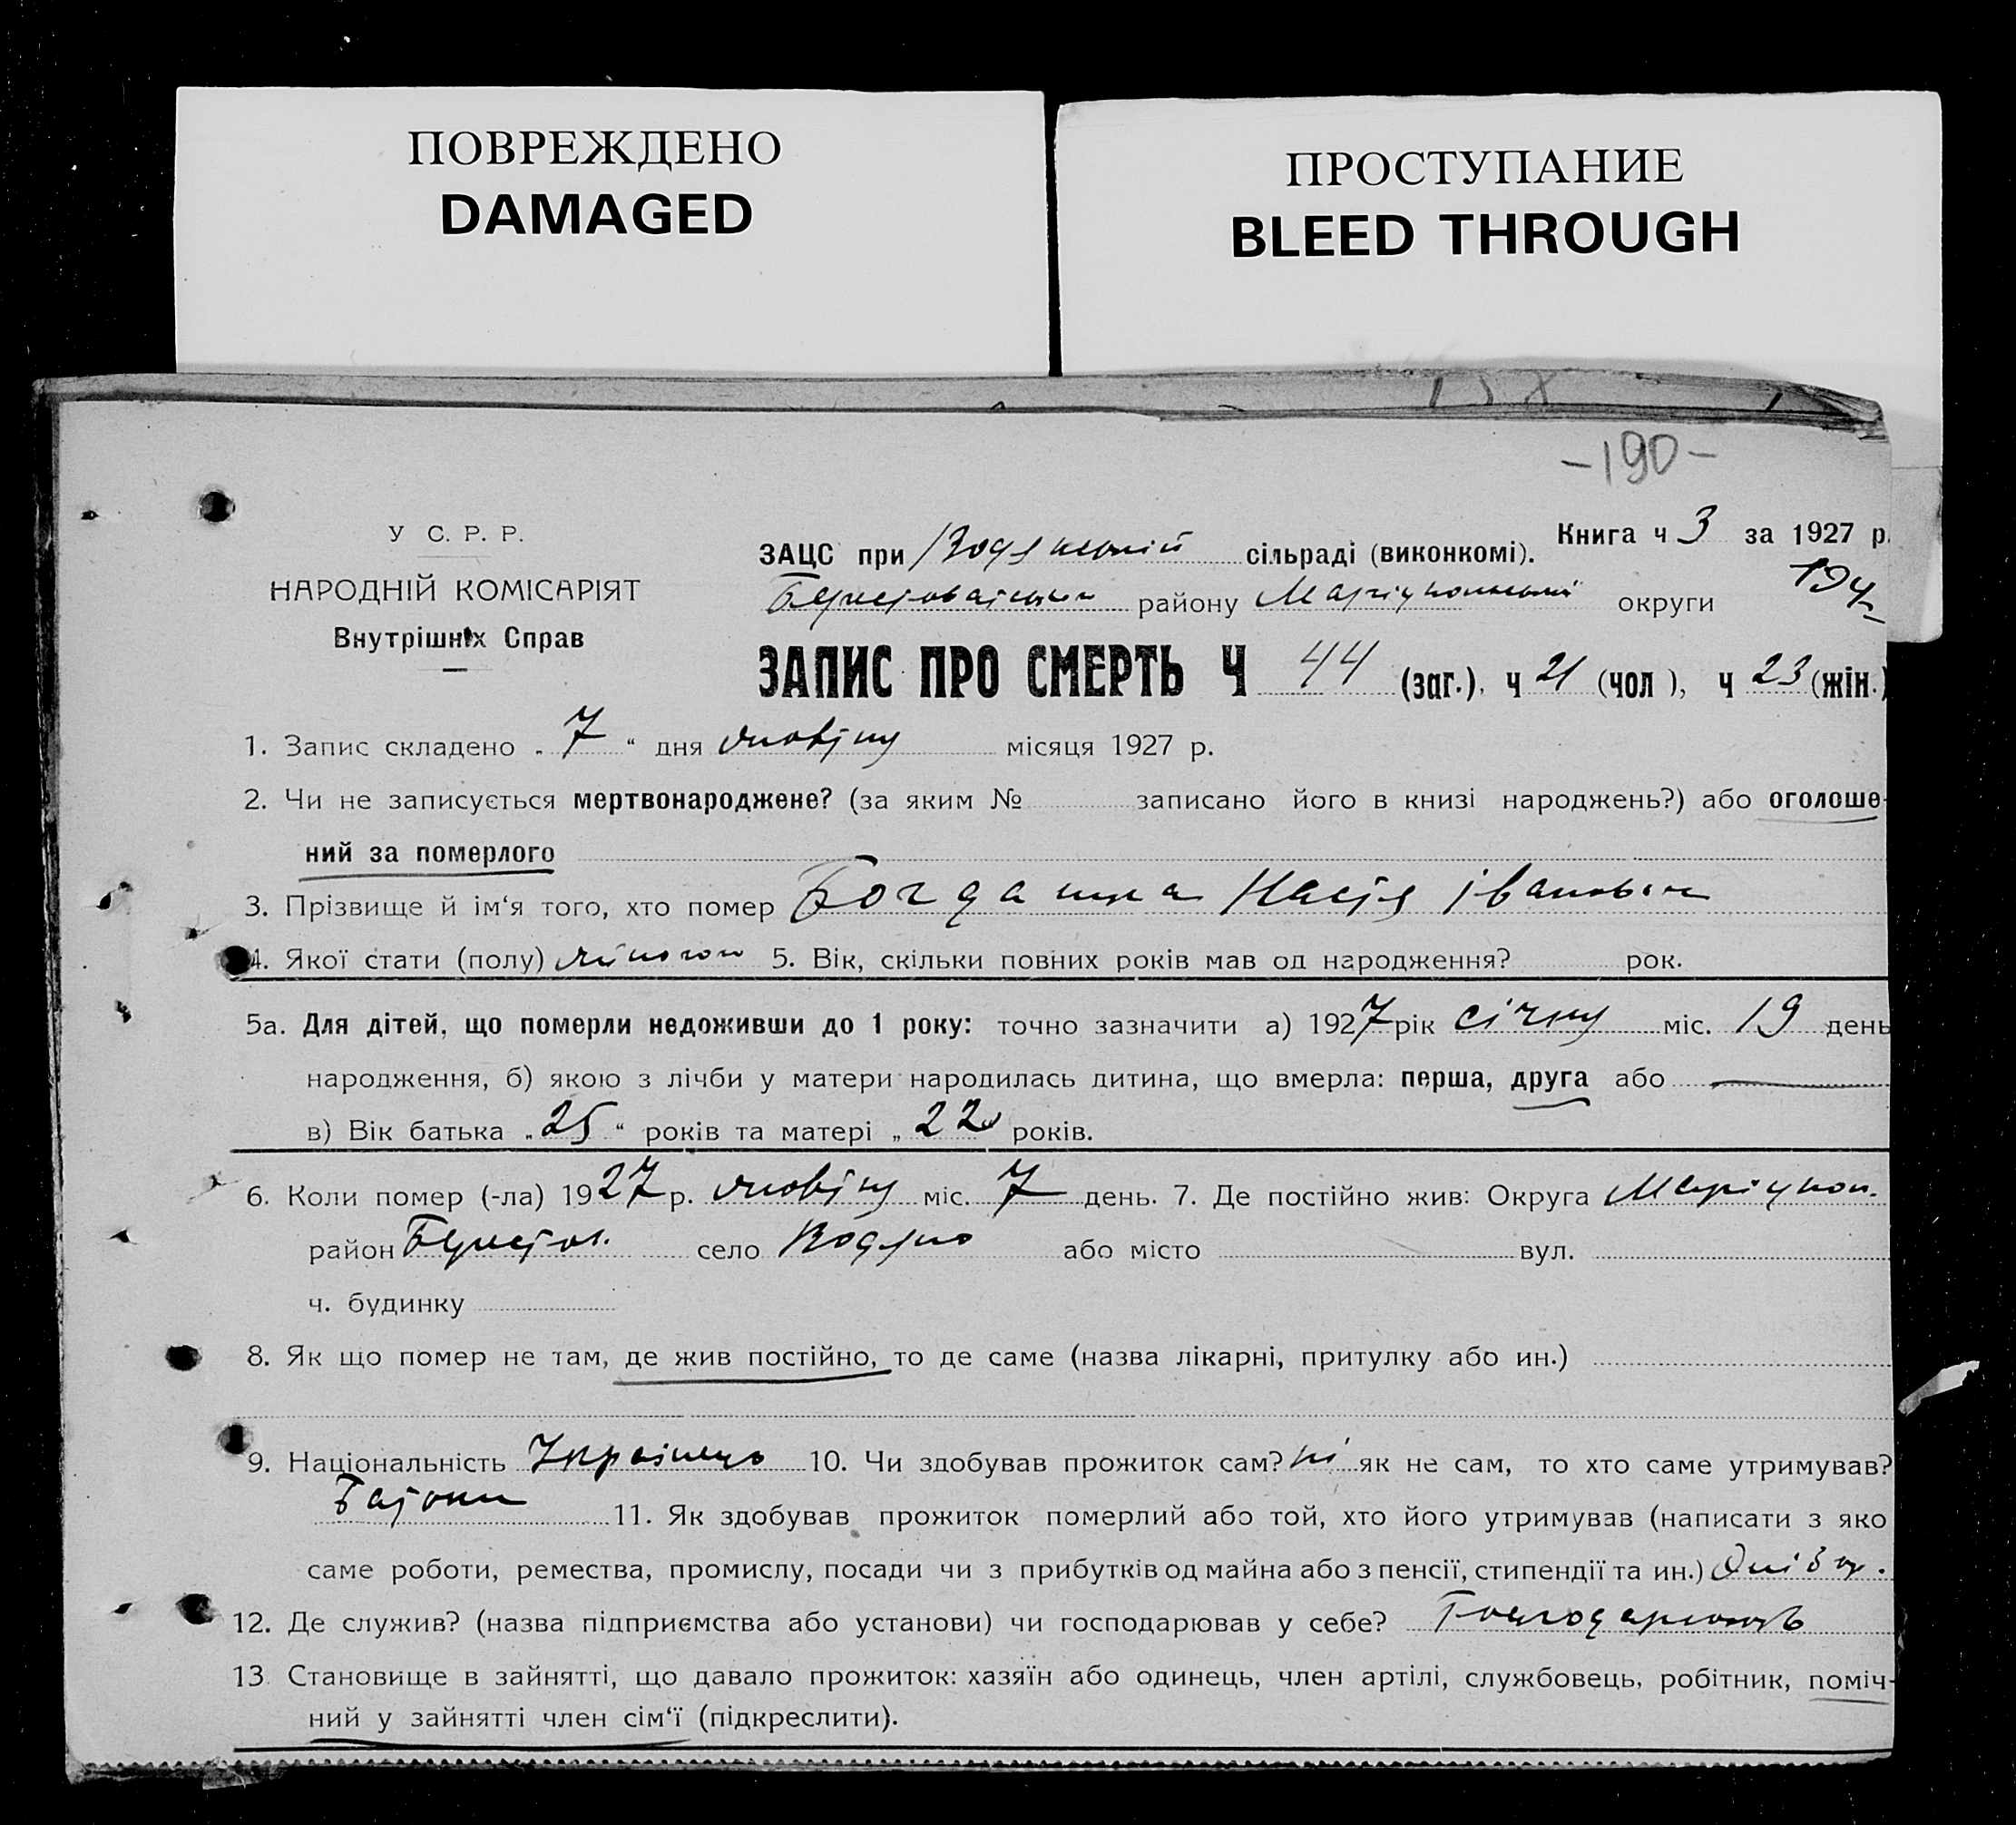 ПОВРЕЖДЕНО
DAMAGED
ПРОСТУПАНИЕ
BLEED THROUGH
-190-
У С. Р. Р.
НАРОДНІЙ КОМІСАРІЯТ
Внутрішніх Справ
ЗАЦС при сільраді (виконкомі). Книга ч 3 за 1927 р.
району округи
ЗАПИС ПРО СМЕРТЬ Ч 44 (заг.), ч 21 (чол ), ч 23 (жін.)
1. Запис складено „ 7 “ дня жовтня місяця 1927 р.
2. Чи не записується мертвонароджене? (за яким № записано його в книзі народжень?) або оголоше-
ний за померлого
3. Прізвище й ім‘я того, хто помер Настя
4. Якої стати (полу) 5. Вік, скільки повних років мав од народження? рок.
5а. Для дітей, що померли недоживши до 1 року: точно зазначити а) 1927 рік січня міс. 19 день
народження, б) якою з лічби у матери народилась дитина, що вмерла: перша, друга або —
в) Вік батька „ 25 “ років та матері „ 22 років.
6. Коли помер (-ла) 1927 р. жовтня міс. 7 день. 7. Де постійно жив: Округа Маріупол.
район село Водяно або місто вул.
ч. будинку
8. Як що помер не там, де жив постійно, то де саме (назва лікарні, притулку або ин.)
9. Національність Українець 10. Чи здобував прожиток сам? ні як не сам, то хто саме утримував?
Батьки 11. Як здобував прожиток померлий або той, хто його утримував (написати з яко
саме роботи, ремества, промислу, посади чи з прибутків од майна або з пенсії, стипендії та ин.)
12. Де служив? (назва підприємства або установи) чи господарював у себе?
13 Становище в зайнятті, що давало прожиток: хазяїн або одинець, член артілі, службовець, робітник, поміч-
ний у зайнятті член сім‘ї (підкреслити).